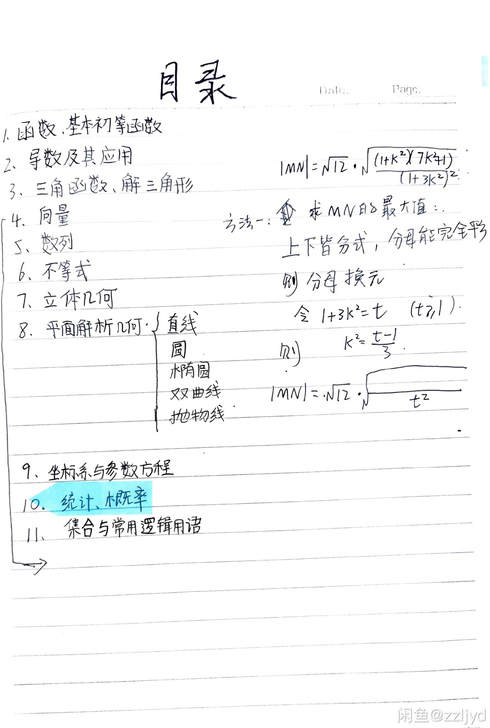 目录
Date. Page.
1. 函数、基本初等函数
2. 导数及其应用
3. 三角函数、解三角形
4. 向量
5. 数列
6. 不等式
7. 立体几何
8. 平面解析几何. { 直线
圆
椭圆
双曲线
抛物线
9. 坐标系与参数方程
10. 统计、概率
11. 集合与常用逻辑用语
|MN|=√12 · √((1+K²)(7K²+1)/(1+3K²)²)
方法一: 求MN的最大值:
上下皆分式，分母能完全平
则 分母 换元
令 1+3K²=t (t≥1).
则 K²=(t-1)/3.
|MN|=√12 · √( /t²)
闲鱼@zzljyd